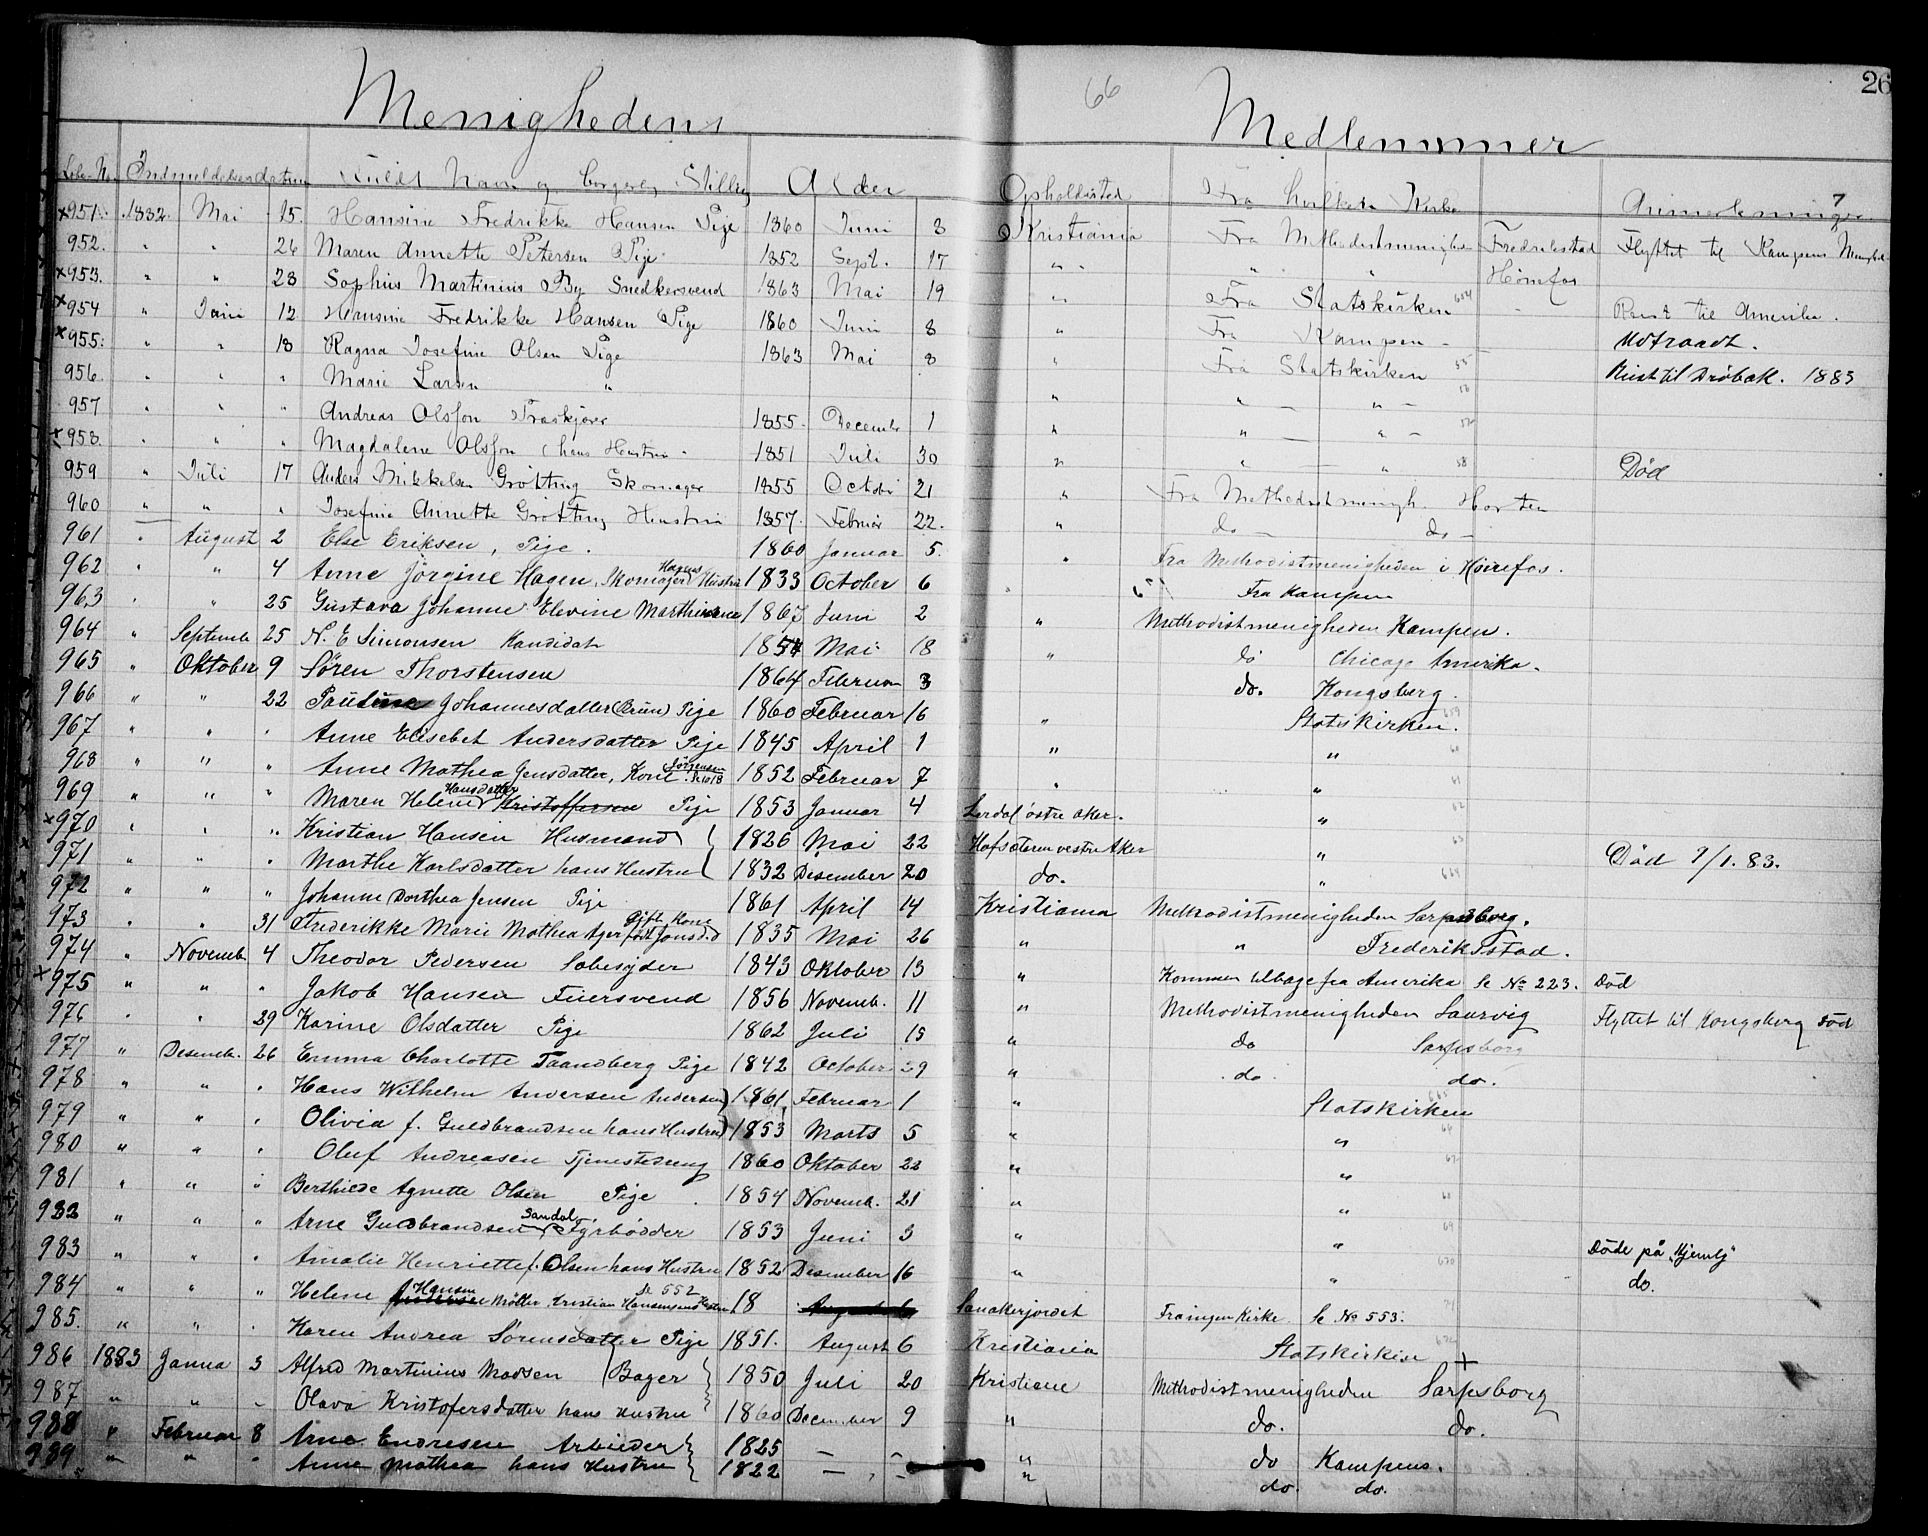 26
66
Menighedens Medlemmer
Löbe-No. Indmeldelsesdatum Fulde Navn og borgerlig Stilling Alder Opholdssted Fra hvilken Kirke Anmerkninger
×951. 1882. Mai 15. Hansine Fredrikke Hansen Pige 1860 Juni 3 Kristiania Fra Methodistmenighe Fredrikstad Flyttet til Kampens Menighed
952. " " 26 Maren Annette Petersen Pige 1852 Sept. 17 " " " Hönefos
×953. " " 28 Sophus Martinius By Snedkersvend 1863 Mai 19 " Fra Statskirken 654 Reist til Amerika.
×954 " Juni 12 Hansine Fredrikke Hansen Pige 1860 Juni 8 " Fra Kampen – Udtraadt.
×955. " " 18 Ragna Josefine Olsen Pige 1863 Mai 8 " Fra Statskirken 55 Reist til Dröbak. 1883
956. " " " Marie Larsen " " " – " –
957 " " " Andreas Olsson Traskjörer 1855. December 1 " " – " –
×958. " " " Magdalene Olsson (hans Hustru 1851 Juli 30 " " – " 58 Död
959 " Juli 17 Anders Mikkelsen Grötting Skomager 1855 October 21 " Fra Methodistmenigh. Horten
960 " " " Josefine Annette Grötting Hustru 1857. Februar 22. " do – do –
961 " August 2 Else Eriksen, Pige. 1860 Januar 5. " Fra Methodistmenigheden i Hönefos.
962 " " 4 Anne Jörgine Hagen, Skomager Hagens Hustru 1833 October 6 " Fra Kampen
963 " " 25 Gustava Johanne Elevine Marthinsen 1867 Juni 2 " Methodistmenigheden Kampen.
964 " Septemb. 25 N. E Simonsen Kandidat 1854 Mai 18 " do Chicago Amerika.
965 " Oktober 9 Sören Thorstensen 1864 Februar 3 do. Kongsberg.
966 " " 22 Pauline Johannesdatter (Brun) Pige 1860 Februar 16 " Statskirken. 659
967 " " " Anne Elisebet Andersdatter Pige 1845 April 1 " " 60
968 " " " Anne Mathea Jensdatter, Kone Jörgensen Se 1018 1852 Februar 7 " " 61
969 " " " Maren Helene Hansdatter Kristoffersen Pige 1853 Januar 4 Lerdal östre Aker. " 62
×970 " " " Kristian Hansen Husmand 1826 Mai 22 Hafsteren vestre Aker " 63 Död 9/1. 83.
971 " " " Marthe Karlsdatter hans Hustru 1832 Desember 20 do. " 664
972 " " " Johanne Dorthea Jensen Pige 1861 April 14 Kristiania Methodistmenigheden Sarpsborg.
973 " " 31 Frederikke Marie Mathea Ager Gift Kone födt Jonsd. 1835 Mai 26 " " Frederiksstad.
974 " Novemb. 4 Theodor Pedersen Sæbesyder 1843 Oktober 13 " Kommen tilbage fra Amerika se No 223. Död
×975 " " " Jakob Hansen Türsvend 1856 Novemb. 11 " Methodistmenigheden Laurvig Flyttet til Kongsberg död
976 " " 29 Karine Olsdatter Pige 1862 Juli 15 " do Sarpsborg
977 " Desemb. 26 Emma Charlotte Taandberg Pige 1842 October 29 " do. do.
978 " " " Hans Wilhelm Andersen Andersen) 1861. Februar 1 " Statskirken 665
979 " " " Olivia f. Guldbrandsen hans Hustru) 1853 Marts 5 " " 66
980 " " " Oluf Andreasen Tjenestedreng 1860 Oktober 22 " " 67
981 " " " Berthiede Agnette Olsen Pige 1854 Novemb. 21 " " 68
982 " " " Arne Guldbrandsen Sandal Fyrbödder 1853 Juni 3 " " 69 Döde på "Hjemly"
983 " " " Amalie Henriette f. Olsen hans Hustru 1852 Desember 16 " " 670 do.
984 " " " Helene Hansen Möller, Kristian Hansens Hustru Se 552 18 August 6 Sanakerjordet Fra ingen Kirke Se No 553. 71
985. " " " Karen Andrea Sörensdatter Pige 1851. August 6 Kristiania Statskirken 672
986 1883 Janua 3 Alfred Martinius Madsen (Bager 1850 Juli 20 Kristiane Methodistmenigheden Sarpsborg
987 " " " Olava Kristofersdatter hans Hustru 1860 December 9 " do. do.
988 " Februar 8 Arne Endresen Arbeider 1825 – – " do Kampens.
989 " " " Anne Mathea hans Hustru 1822 – – " do. do.